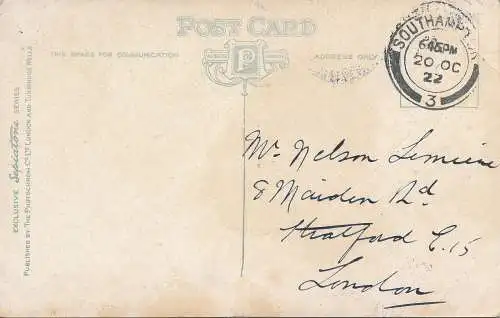 POST CARD
THIS SPACE FOR COMMUNICATION
ADDRESS ONLY
EXCLUSIVE Sepiatone SERIES
PUBLISHED BY THE PHOTOCHROM Co LTD LONDON AND TUNBRIDGE WELLS
SOUTHAMPTON
645PM
20 OC
22
3
Mr Nelson
8 Maiden Rd
Stratford E.15
London